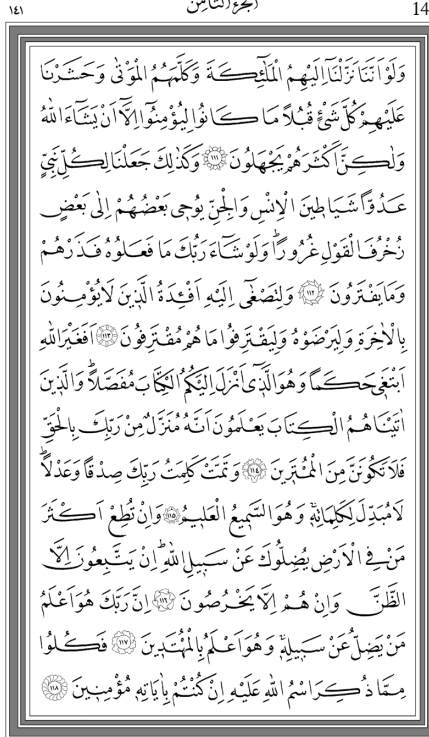 ١٤١ الجزء الثامن 14
وَلَوْ اَنَّنَا نَزَّلْنَٓا اِلَيْهِمُ الْمَلٰٓئِكَةَ وَكَلَّمَهُمُ الْمَوْتٰى وَحَشَرْنَا
عَلَيْهِمْ كُلَّ شَيْءٍ قُبُلًا مَا كَانُوا لِيُؤْمِنُٓوا اِلَّٓا اَنْ يَشَٓاءَ اللّٰهُ
وَلٰكِنَّ اَكْثَرَهُمْ يَجْهَلُونَ ﴿١١١﴾ وَكَذٰلِكَ جَعَلْنَا لِكُلِّ نَبِيٍّ
عَدُوًّا شَيَاطِينَ الْاِنْسِ وَالْجِنِّ يُوحٖى بَعْضُهُمْ اِلٰى بَعْضٍ
زُخْرُفَ الْقَوْلِ غُرُورًاۜ وَلَوْ شَٓاءَ رَبُّكَ مَا فَعَلُوهُ فَذَرْهُمْ
وَمَا يَفْتَرُونَ ﴿١١٢﴾ وَلِتَصْغٰٓى اِلَيْهِ اَفْـِٔدَةُ الَّذٖينَ لَا يُؤْمِنُونَ
بِالْاٰخِرَةِ وَلِيَرْضَوْهُ وَلِيَقْتَرِفُوا مَا هُمْ مُقْتَرِفُونَ ﴿١١٣﴾ اَفَغَيْرَ اللّٰهِ
اَبْتَغٖى حَكَمًا وَهُوَ الَّذٖٓى اَنْزَلَ اِلَيْكُمُ الْكِتَابَ مُفَصَّلًاۜ وَالَّذٖينَ
اٰتَيْنَاهُمُ الْكِتَابَ يَعْلَمُونَ اَنَّهُ مُنَزَّلٌ مِنْ رَبِّكَ بِالْحَقِّ
فَلَا تَكُونَنَّ مِنَ الْمُمْتَرٖينَ ﴿١١٤﴾ وَتَمَّتْ كَلِمَتُ رَبِّكَ صِدْقًا وَعَدْلًاۜ
لَا مُبَدِّلَ لِكَلِمَاتِهٖۚ وَهُوَ السَّمٖيعُ الْعَلٖيمُ ﴿١١٥﴾ وَاِنْ تُطِعْ اَكْثَرَ
مَنْ فِى الْاَرْضِ يُضِلُّوكَ عَنْ سَبٖيلِ اللّٰهِۜ اِنْ يَتَّبِعُونَ اِلَّا
الظَّنَّ وَاِنْ هُمْ اِلَّا يَخْرُصُونَ ﴿١١٦﴾ اِنَّ رَبَّكَ هُوَ اَعْلَمُ
مَنْ يَضِلُّ عَنْ سَبٖيلِهٖۚ وَهُوَ اَعْلَمُ بِالْمُهْتَدٖينَ ﴿١١٧﴾ فَكُلُوا
مِمَّا ذُكِرَ اسْمُ اللّٰهِ عَلَيْهِ اِنْ كُنْتُمْ بِاٰيَاتِهٖ مُؤْمِنٖينَ ﴿١١٨﴾